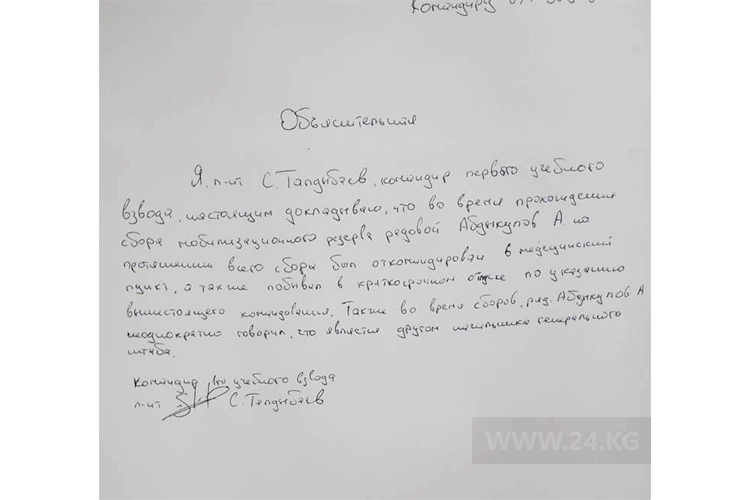 Командиру в/ч
Объяснительная
Я, л-нт С. Талдыбаев, командир первого учебного
взвода, настоящим докладываю, что во время прохождения
сбора мобилизационного резерва рядовой Абдыкупов А. на
протяжении всего сбора был откомандирован в медицинский
пункт, а также побывал в краткосрочном отпуске по указанию
вышестоящего командования. Также во время сборов, ряд. Абдыкупов А
неоднократно говорил, что является другом начальника генерального
штаба.
Командир 1го учебного взвода
л-нт С. Талдыбаев
WWW.24.KG